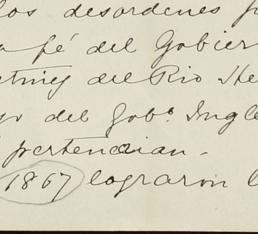 los desordenes p
a fé del Gobier
etnies del Rio He
o del Gob.º Ingle
pertencian.
1867 lograron l